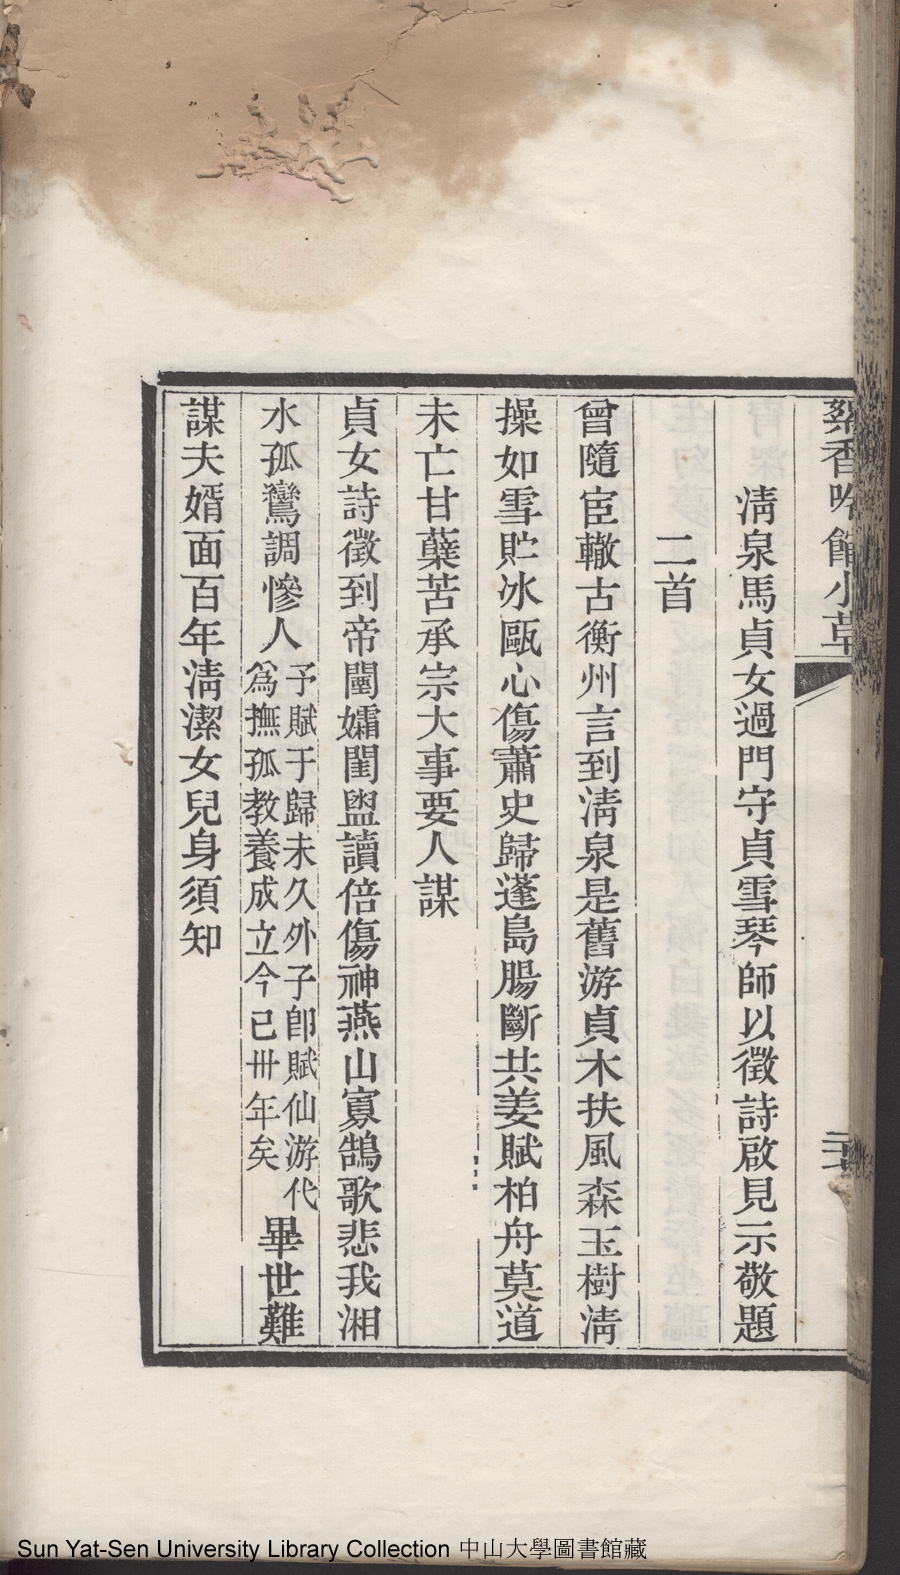 絮香吟館小草
清泉馬貞女過門守貞雪琴師以徵詩啟見示敬題
二首
曾隨宦轍古衡州言到清泉是舊游貞木扶風森玉樹清
操如雪貯冰甌心傷蕭史歸蓬島腸斷共姜賦柏舟莫道
未亡甘蘗苦承宗大事要人謀
貞女詩徵到帝闉孀閨盥讀倍傷神燕山寡鵠歌悲我湘
水孤鸞調慘人予賦于歸未久外子卽賦仙游代
爲撫孤教養成立今已卅年矣畢世難
謀夫婿面百年清潔女兒身須知
Sun Yat-Sen University Library Collection 中山大學圖書館藏